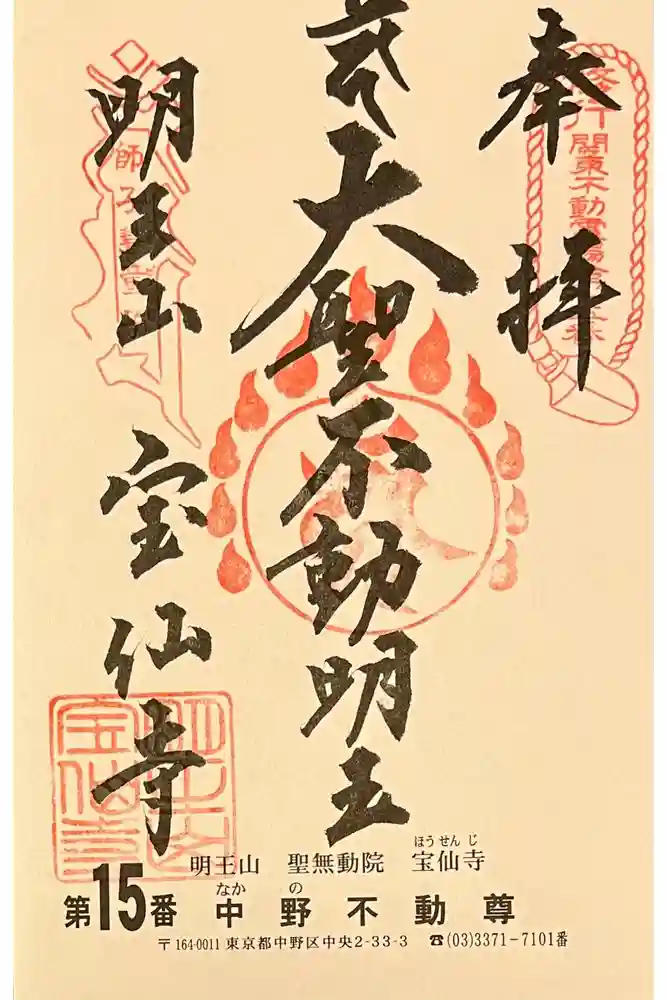 奉拝
大聖不動明王
明王山
宝仙寺
関東不動霊場第
宝仙寺
ほうせんじ
明王山 聖無動院 宝仙寺
なか の
第15番 中野不動尊
〒164-0011 東京都中野区中央2-33-3 ☎(03)3371-7101番